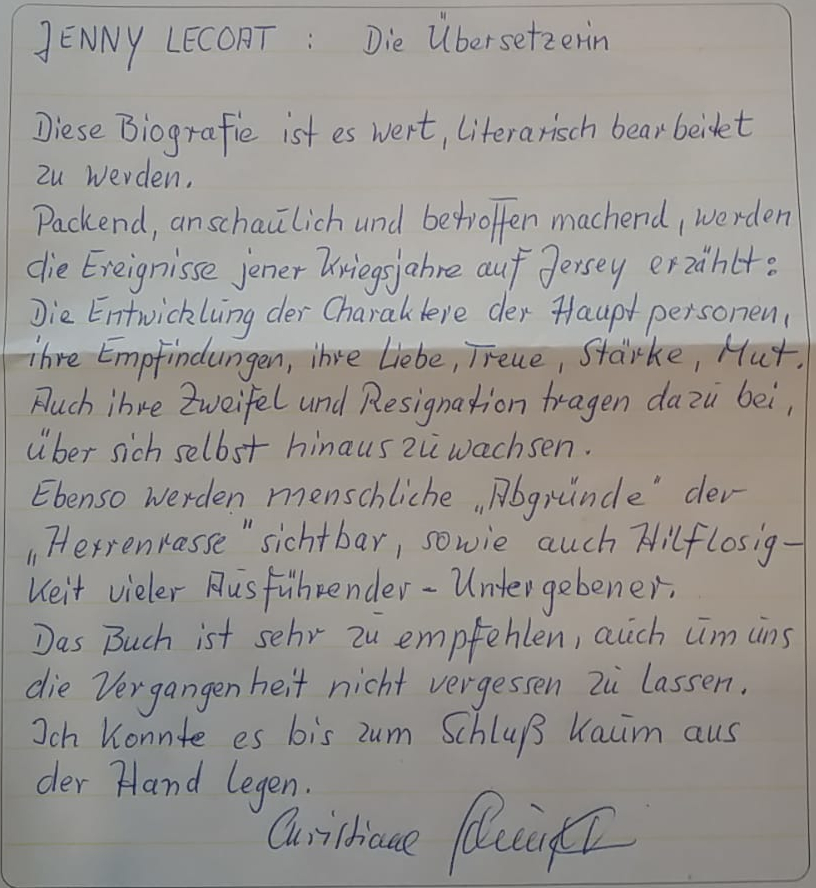 JENNY LECOAT : Die Übersetzerin
Diese Biografie ist es wert, literarisch bearbeitet
zu werden.
Packend, anschaulich und betroffen machend, werden
die Ereignisse jener Kriegsjahre auf Jersey erzählt:
Die Entwicklung der Charaktere der Hauptpersonen,
ihre Empfindungen, ihre Liebe, Treue, Stärke, Mut.
Auch ihre Zweifel und Resignation tragen dazu bei,
über sich selbst hinaus zu wachsen.
Ebenso werden menschliche „Abgründe" der
„Herrenrasse" sichtbar, sowie auch Hilflosig-
keit vieler Ausführender - Untergebener.
Das Buch ist sehr zu empfehlen, auch um uns
die Vergangenheit nicht vergessen zu lassen.
Ich konnte es bis zum Schluß kaum aus
der Hand legen.
Christiane